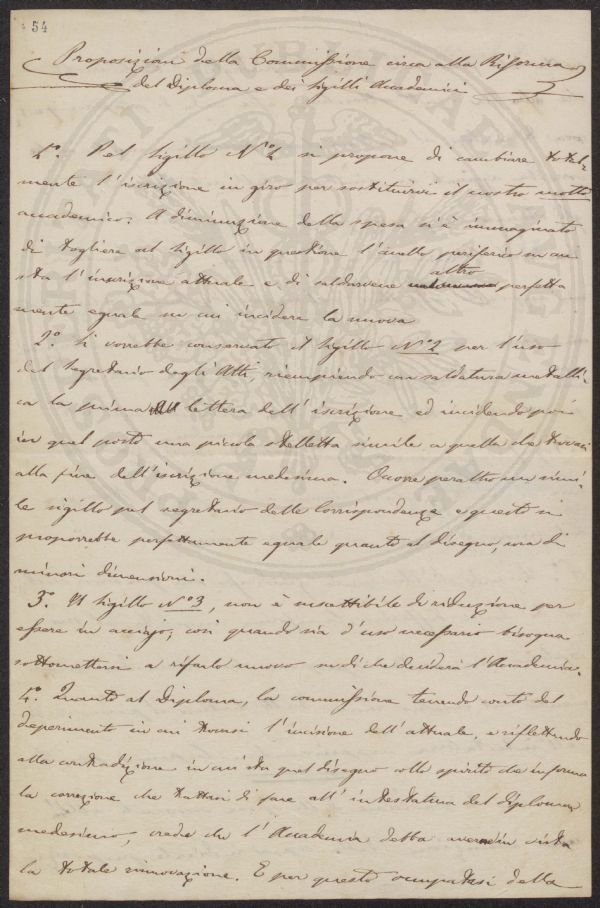 54
Proposizioni della Commissione circa alla Riforma
del Diploma e dei Sigilli Accademici
1º. Pel Sigillo Nº 1 si propone di cambiare total-
mente l'iscrizione in giro per sostituirvi il nostro motto
accademico: A diminuzione della spesa si è immaginato
di togliere al Sigillo in questione l'anello periferico in cui
sta l'inscrizione attuale e di saldarvene altro perfetta
mente eguale in cui incidere la nuova
2º. Si vorrebbe conservato il Sigillo Nº 2 per l'uso
del Segretario degli Atti, riempiendo con saldatura metalli-
ca la prima lettera dell'iscrizione ed incidendo poi
in quel posto una piccola stelletta simile a quella che trovasi
alla fine dell'iscrizione medesima. Occorre peraltro un simi-
le sigillo pel segretario delle Corrispondenze e questo si
proporrebbe perfettamente eguale quanto al disegno, ma di
minori dimensioni.
3º. Il Sigillo Nº 3, non è suscettibile di riduzione per
essere in acciajo; così quando sia d'uso necessario bisogna
sottomettersi a rifarlo nuovo su di che deciderà l'Accademia.
4º. Quanto al Diploma, la commissione tenendo conto del
deperimento in cui trovasi l'incisione dell'attuale, e riflettendo
alla contradizione in cui sta quel disegno collo spirito che informa
la correzione che trattasi di fare all'intestatura del Diploma
medesimo, crede che l'Accademia debba avere in vista
la totale rinnovazione. E per questo occupatasi della